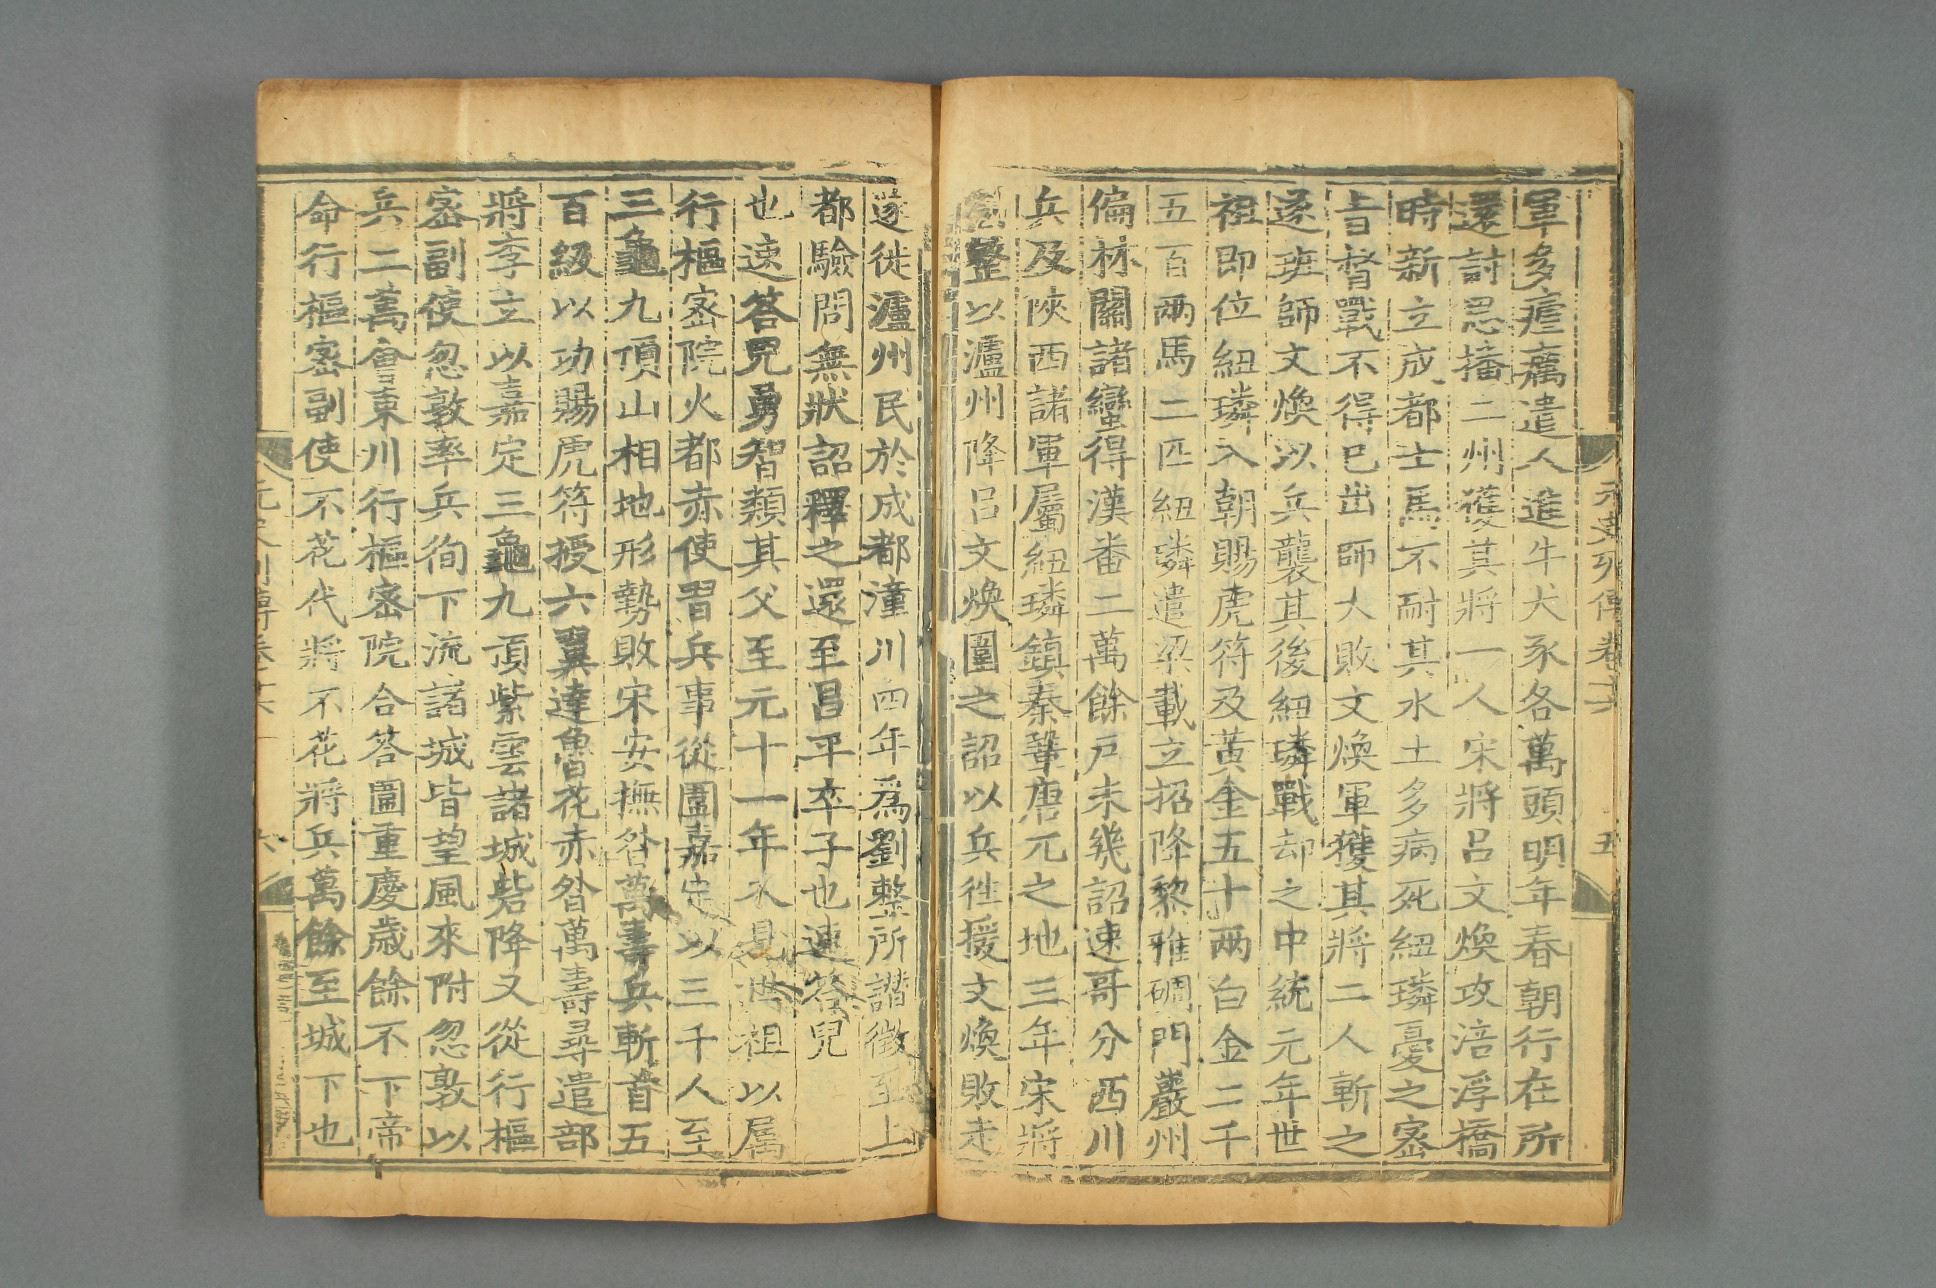 元史列傳卷十六
五
軍多瘧癘遣人進牛犬豕各萬頭明年春朝行在所
還討思播二州獲其將一人宋將呂文煥攻涪浮橋
時新立成都士馬不耐其水土多病死紐璘憂之密
旨督戰不得已出師大敗文煥軍獲其將二人斬之
遂班師文煥以兵襲其後紐璘戰却之中統元年世
祖即位紐璘入朝賜虎符及黃金五十兩白金二千
五百兩馬二匹紐璘遣梁載立招降黎雅碉門巖州
偏林關諸蠻得漢番二萬餘戶未幾詔速哥分西川
兵及陝西諸軍屬紐璘鎮秦鞏唐兀之地三年宋將
劉整以瀘州降呂文煥圍之詔以兵往援文煥敗走
遂徙瀘州民於成都潼川四年爲劉整所譖徵至上
都驗問無狀詔釋之還至昌平卒子也速答兒
也速答兒勇智類其父至元十一年入見世祖以屬
行樞密院火都赤使習兵事從圍嘉定以三千人至
三龜九頂山相地形勢敗宋安撫昝萬壽兵斬首五
百級以功賜虎符授六翼達魯花赤昝萬壽尋遣部
將李立以嘉定三龜九頂紫雲諸城砦降又從行樞
密副使忽敦率兵徇下流諸城皆望風來附忽敦以
兵二萬會東川行樞密院合答圍重慶歲餘不下帝
命行樞密副使不花代將不花將兵萬餘至城下也
元史列傳卷十六
六